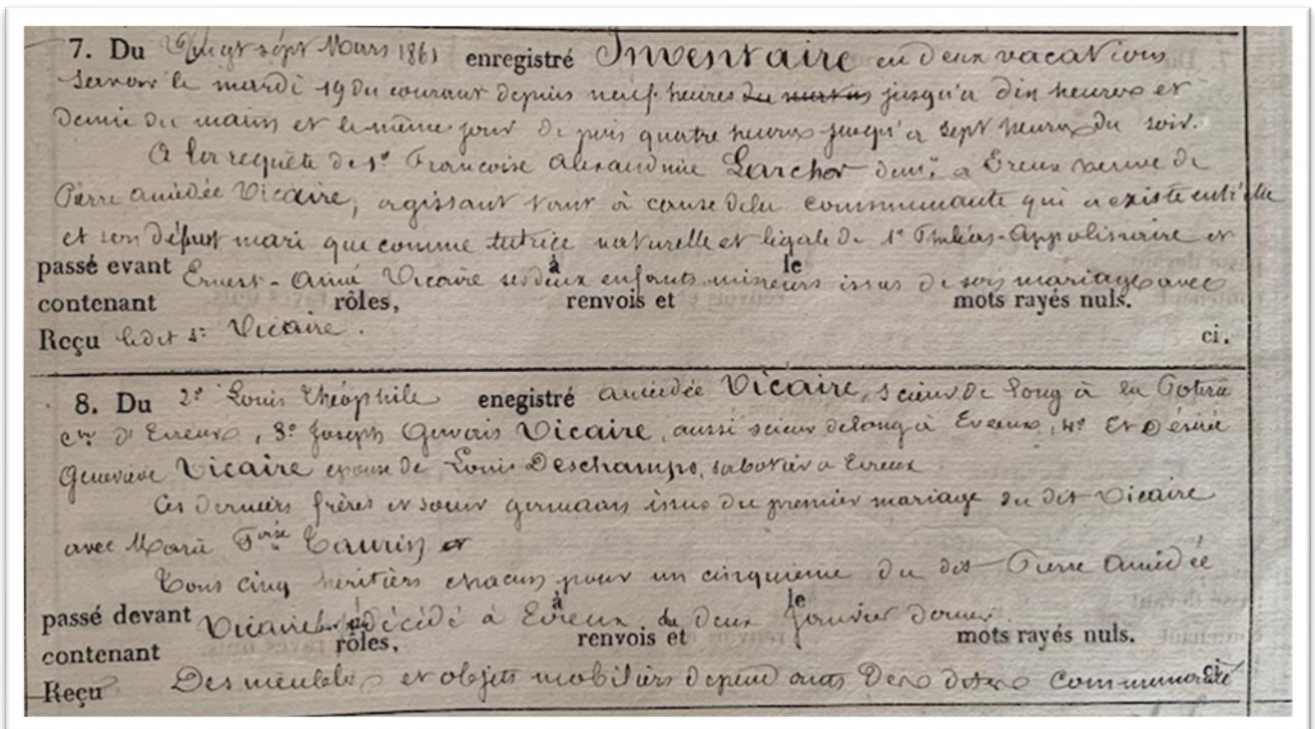 7. Du Vingt sept Mars 1861 enregistré Inventaire en deux vacations
savoir le mardi 19 du courant depuis neuf heures du matin jusqu'à dix heures et
demie du matin et le même jour depuis quatre heures jusqu'à sept heures du soir.
A la requête de de Françoise Alexandrine Larcher demt a Evreux veuve de
Pierre Amédée Vicaire, agissant tant à cause de la communauté qui a existé entr'elle
et son défunt mari que comme tutrice naturelle et légale de 1° Appolinaire et
passé evant Ernest-Aimé Vicaire ses deux à enfants mineurs le issus de son mariage avec
contenant rôles, renvois et mots rayés nuls.
Reçu ledit sr Vicaire. ci.
8. Du 2° Louis Théophile enegistré Amédée Vicaire, scieur de long à la Poterie
cne d'Evreux, 3° Joseph Gervais Vicaire, aussi scieur de long à Evreux, 4° Et Désirée
Geneviève Vicaire épouse de Louis Deschamps, sabotier a Evreux
Ces derniers frères et sœur germains issus du premier mariage du dit Vicaire
avec Marie Taurin et
Tous cinq héritiers chacun pour un cinquième du dit Pierre Amédée
passé devant Vicaire décédé à à Evreux le deux le Janvier dernier
contenant rôles, renvois et mots rayés nuls.
Reçu Des meubles et objets mobiliers dépendants communauté ci